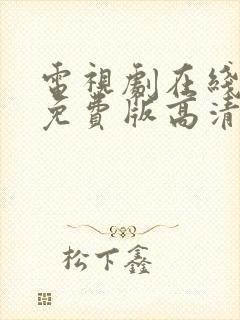 電視劇在綫
免費版高清
松下鑫